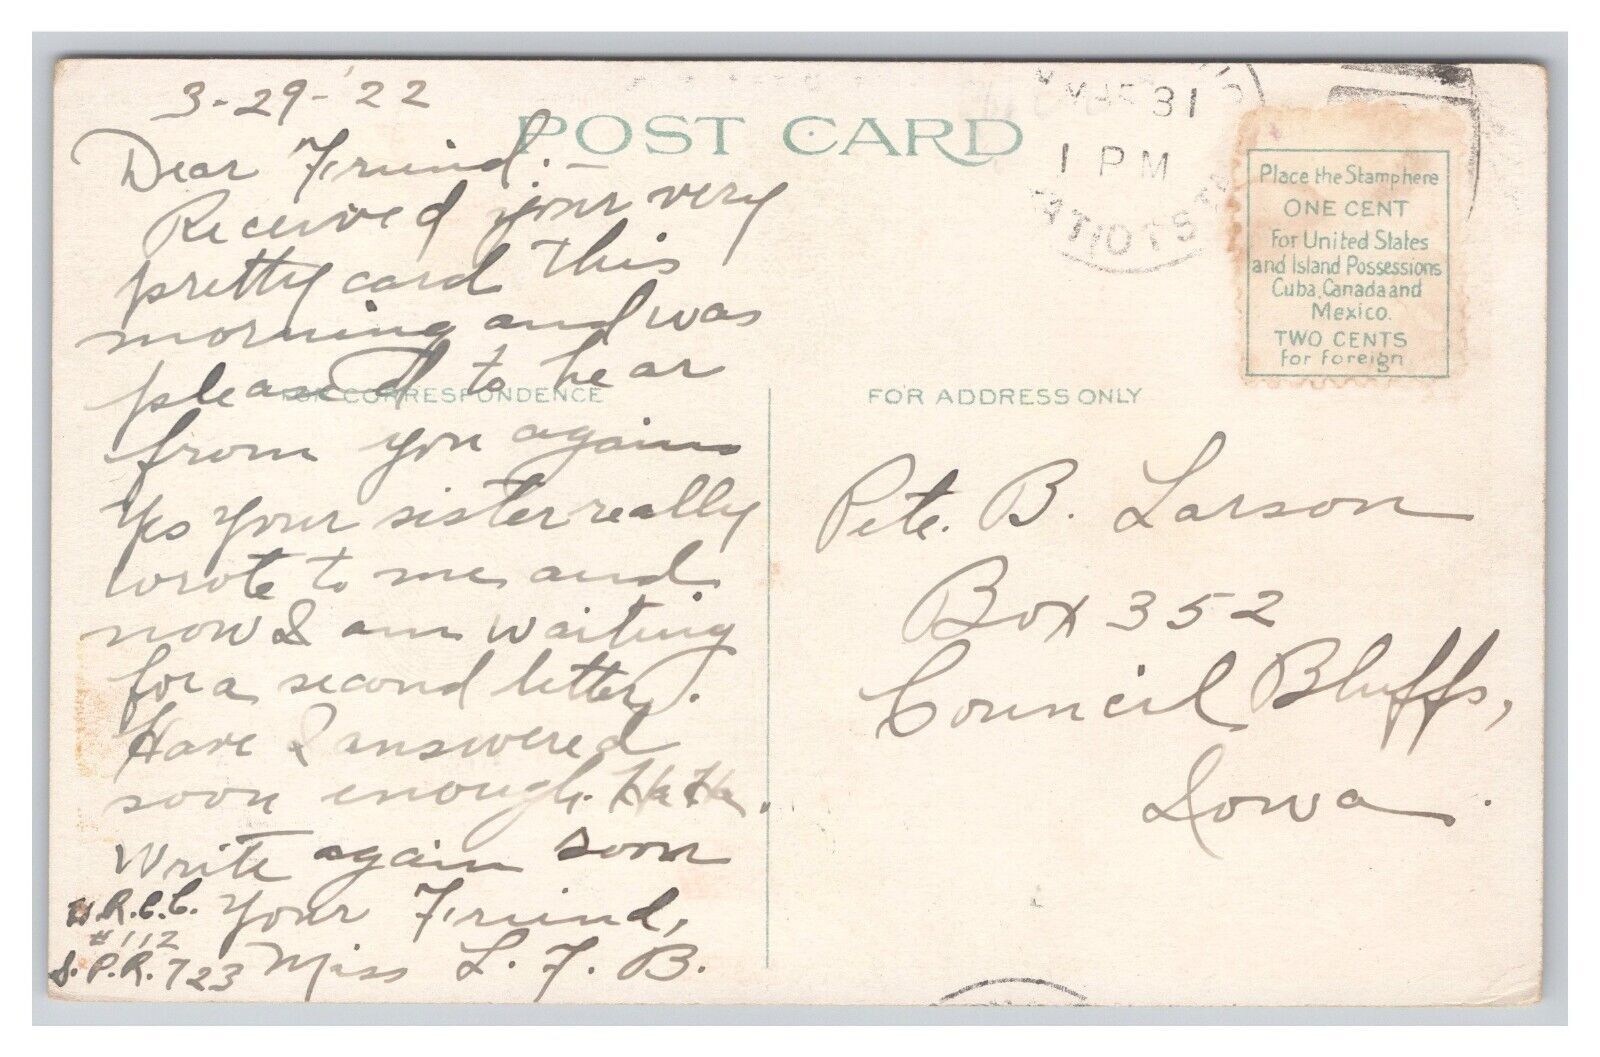 3-29-'22
POST CARD
MAR 31
1 PM
Dear Friend. —
Received your very
pretty card this
morning and was
pleased to hear
from you again
Yes your sister really
wrote to me and
now I am waiting
for a second letter.
Have I answered
soon enough. Ha Ha.
Write again soon
Your Friend,
Miss L. F. B.
#112
S.P.R. 723
FOR CORRESPONDENCE
Place the Stamp here
ONE CENT
For United States
and Island Possessions
Cuba, Canada and
Mexico.
TWO CENTS
for foreign
FOR ADDRESS ONLY
Pete. B. Larson
Box 352
Council Bluffs,
Iowa.